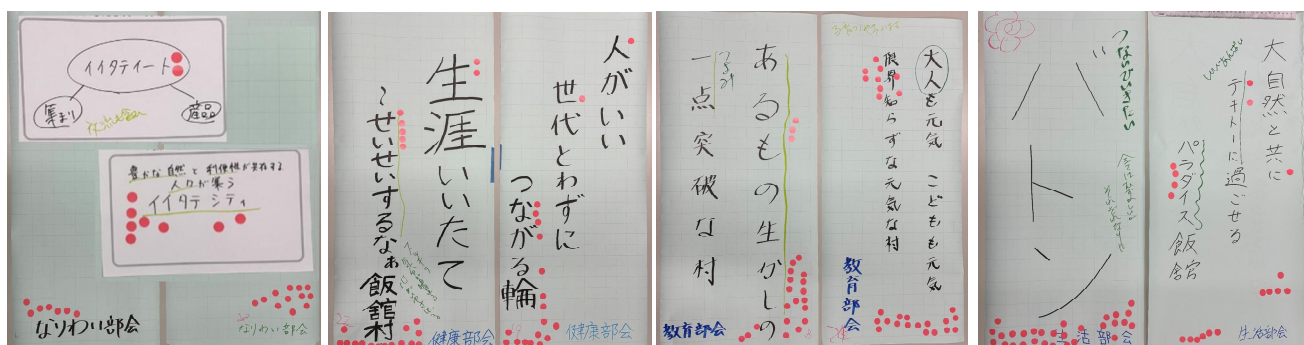 イイタテイート
集まり
産品
豊かな自然と利便性が共存する
人々が集う
イイタテシティ
なりわい部会
なりわい部会
生涯いいたて
～せいせいするなぁ飯舘村
健康部会
人がいい
世代とわずに
つながる輪
健康部会
あるもの生かしの
一点突破な村
教育部会
大人も元気 こどもも元気
限界知らずな元気な村
教育部会
つないでいきたい
バトン
生活部会
大自然と共に
テキトーに過ごせる
パラダイス飯舘
生活部会